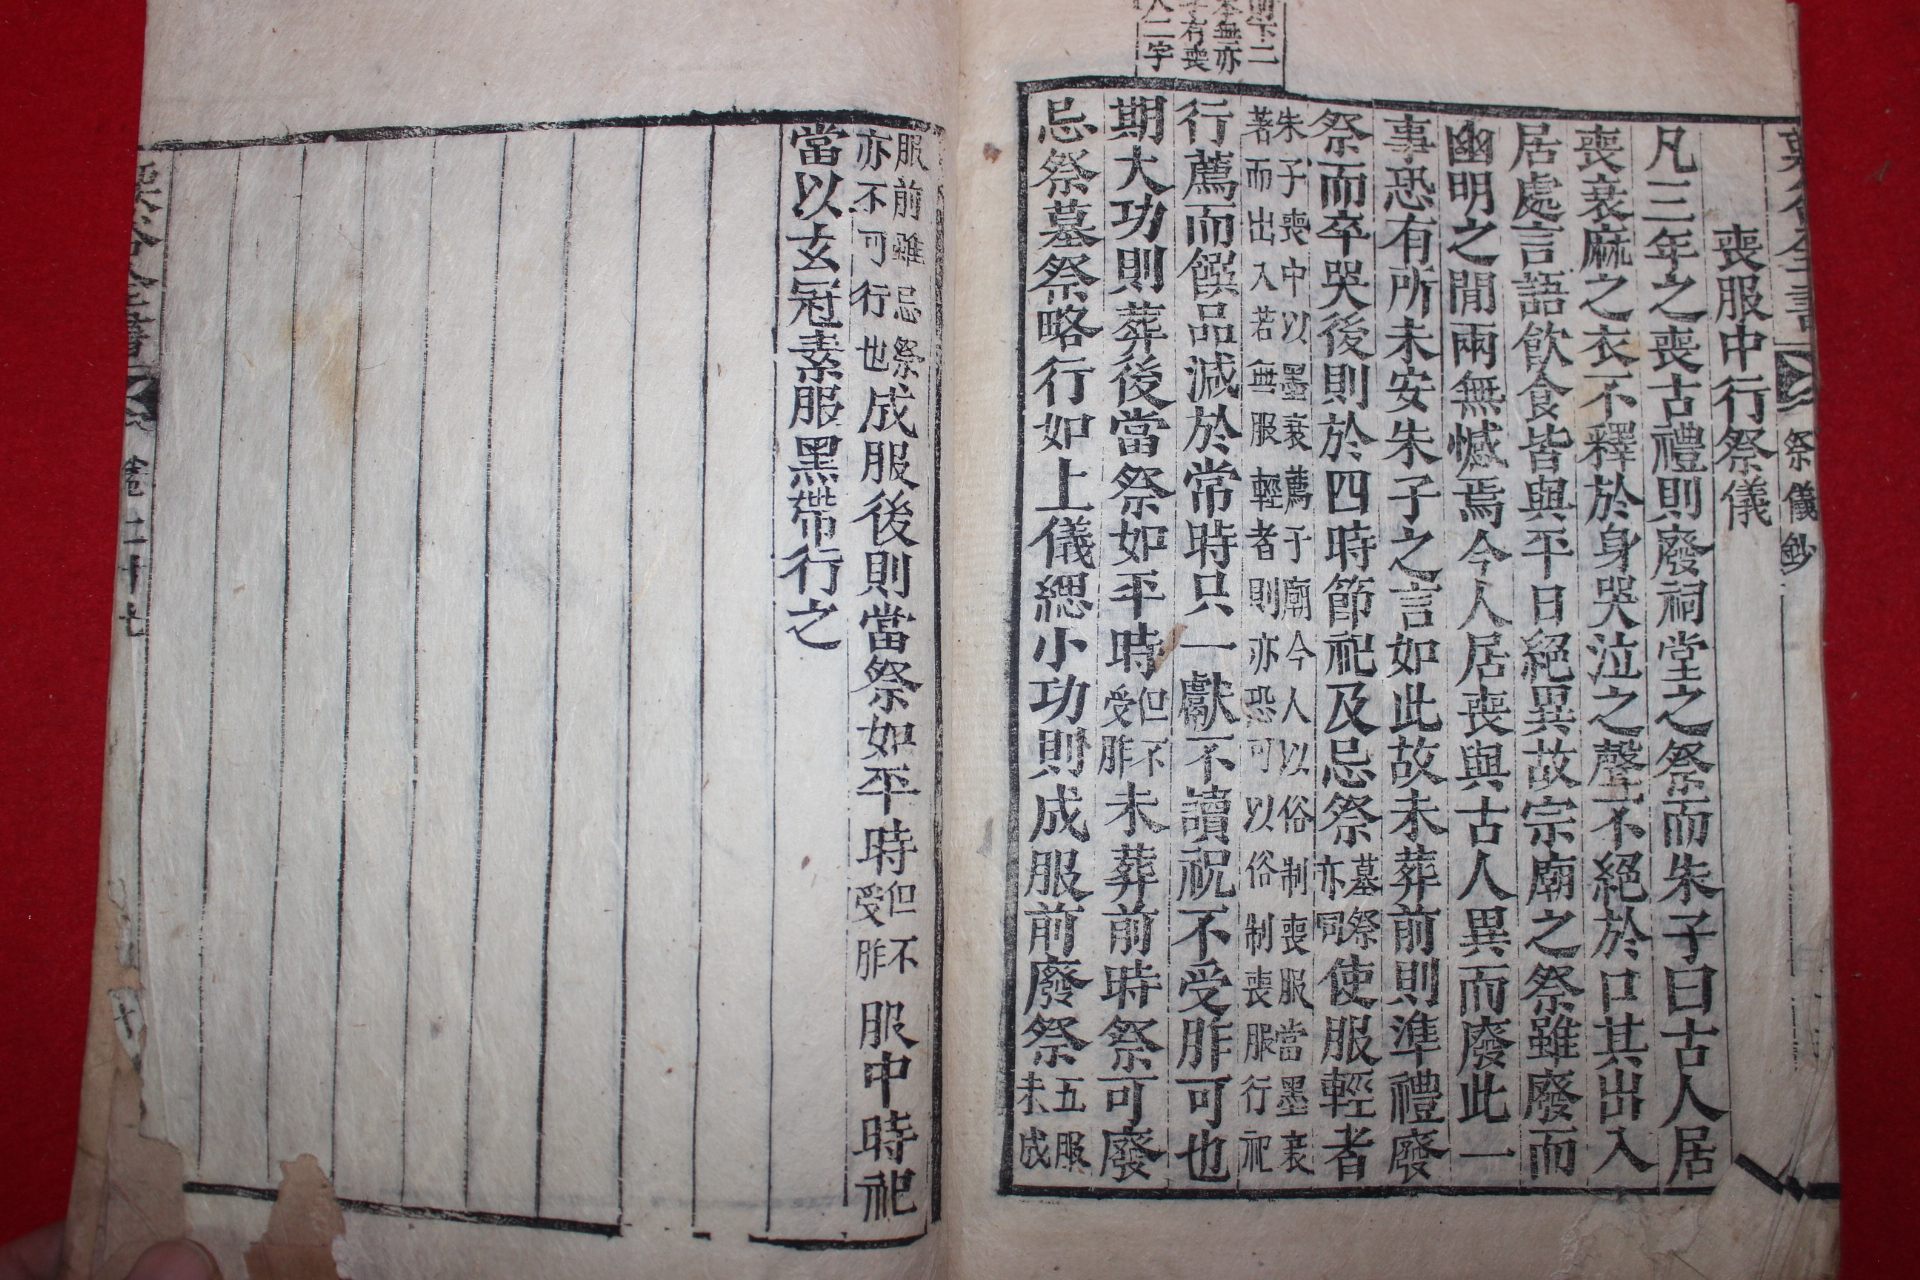 祭儀鈔
喪服中行祭儀
凡三年之喪古禮則廢祠堂之祭而朱子曰古人居
喪衰麻之衣不釋於身哭泣之聲不絕於口其出入
居處言語飮食皆與平日絕異故宗廟之祭雖廢而
幽明之閒兩無憾焉今人居喪與古人異而廢此一
事恐有所未安朱子之言如此故未葬前則準禮廢
祭而卒哭後則於四時節祀及忌祭墓祭亦同使服輕者
朱子喪中以墨衰薦于廟今人以俗制喪服當墨衰
著而出入若無服輕者則亦恐可以俗制喪服行祀
行薦而饌品減於常時只一獻不讀祝不受胙可也
期大功則葬後當祭如平時但不受胙未葬前時祭可廢
忌祭墓祭略行如上儀緦小功則成服前廢祭五服未成
服前雖忌祭亦不可行也成服後則當祭如平時但不受胙服中時祀
當以玄冠素服黑帶行之
栗谷全書
卷二十七